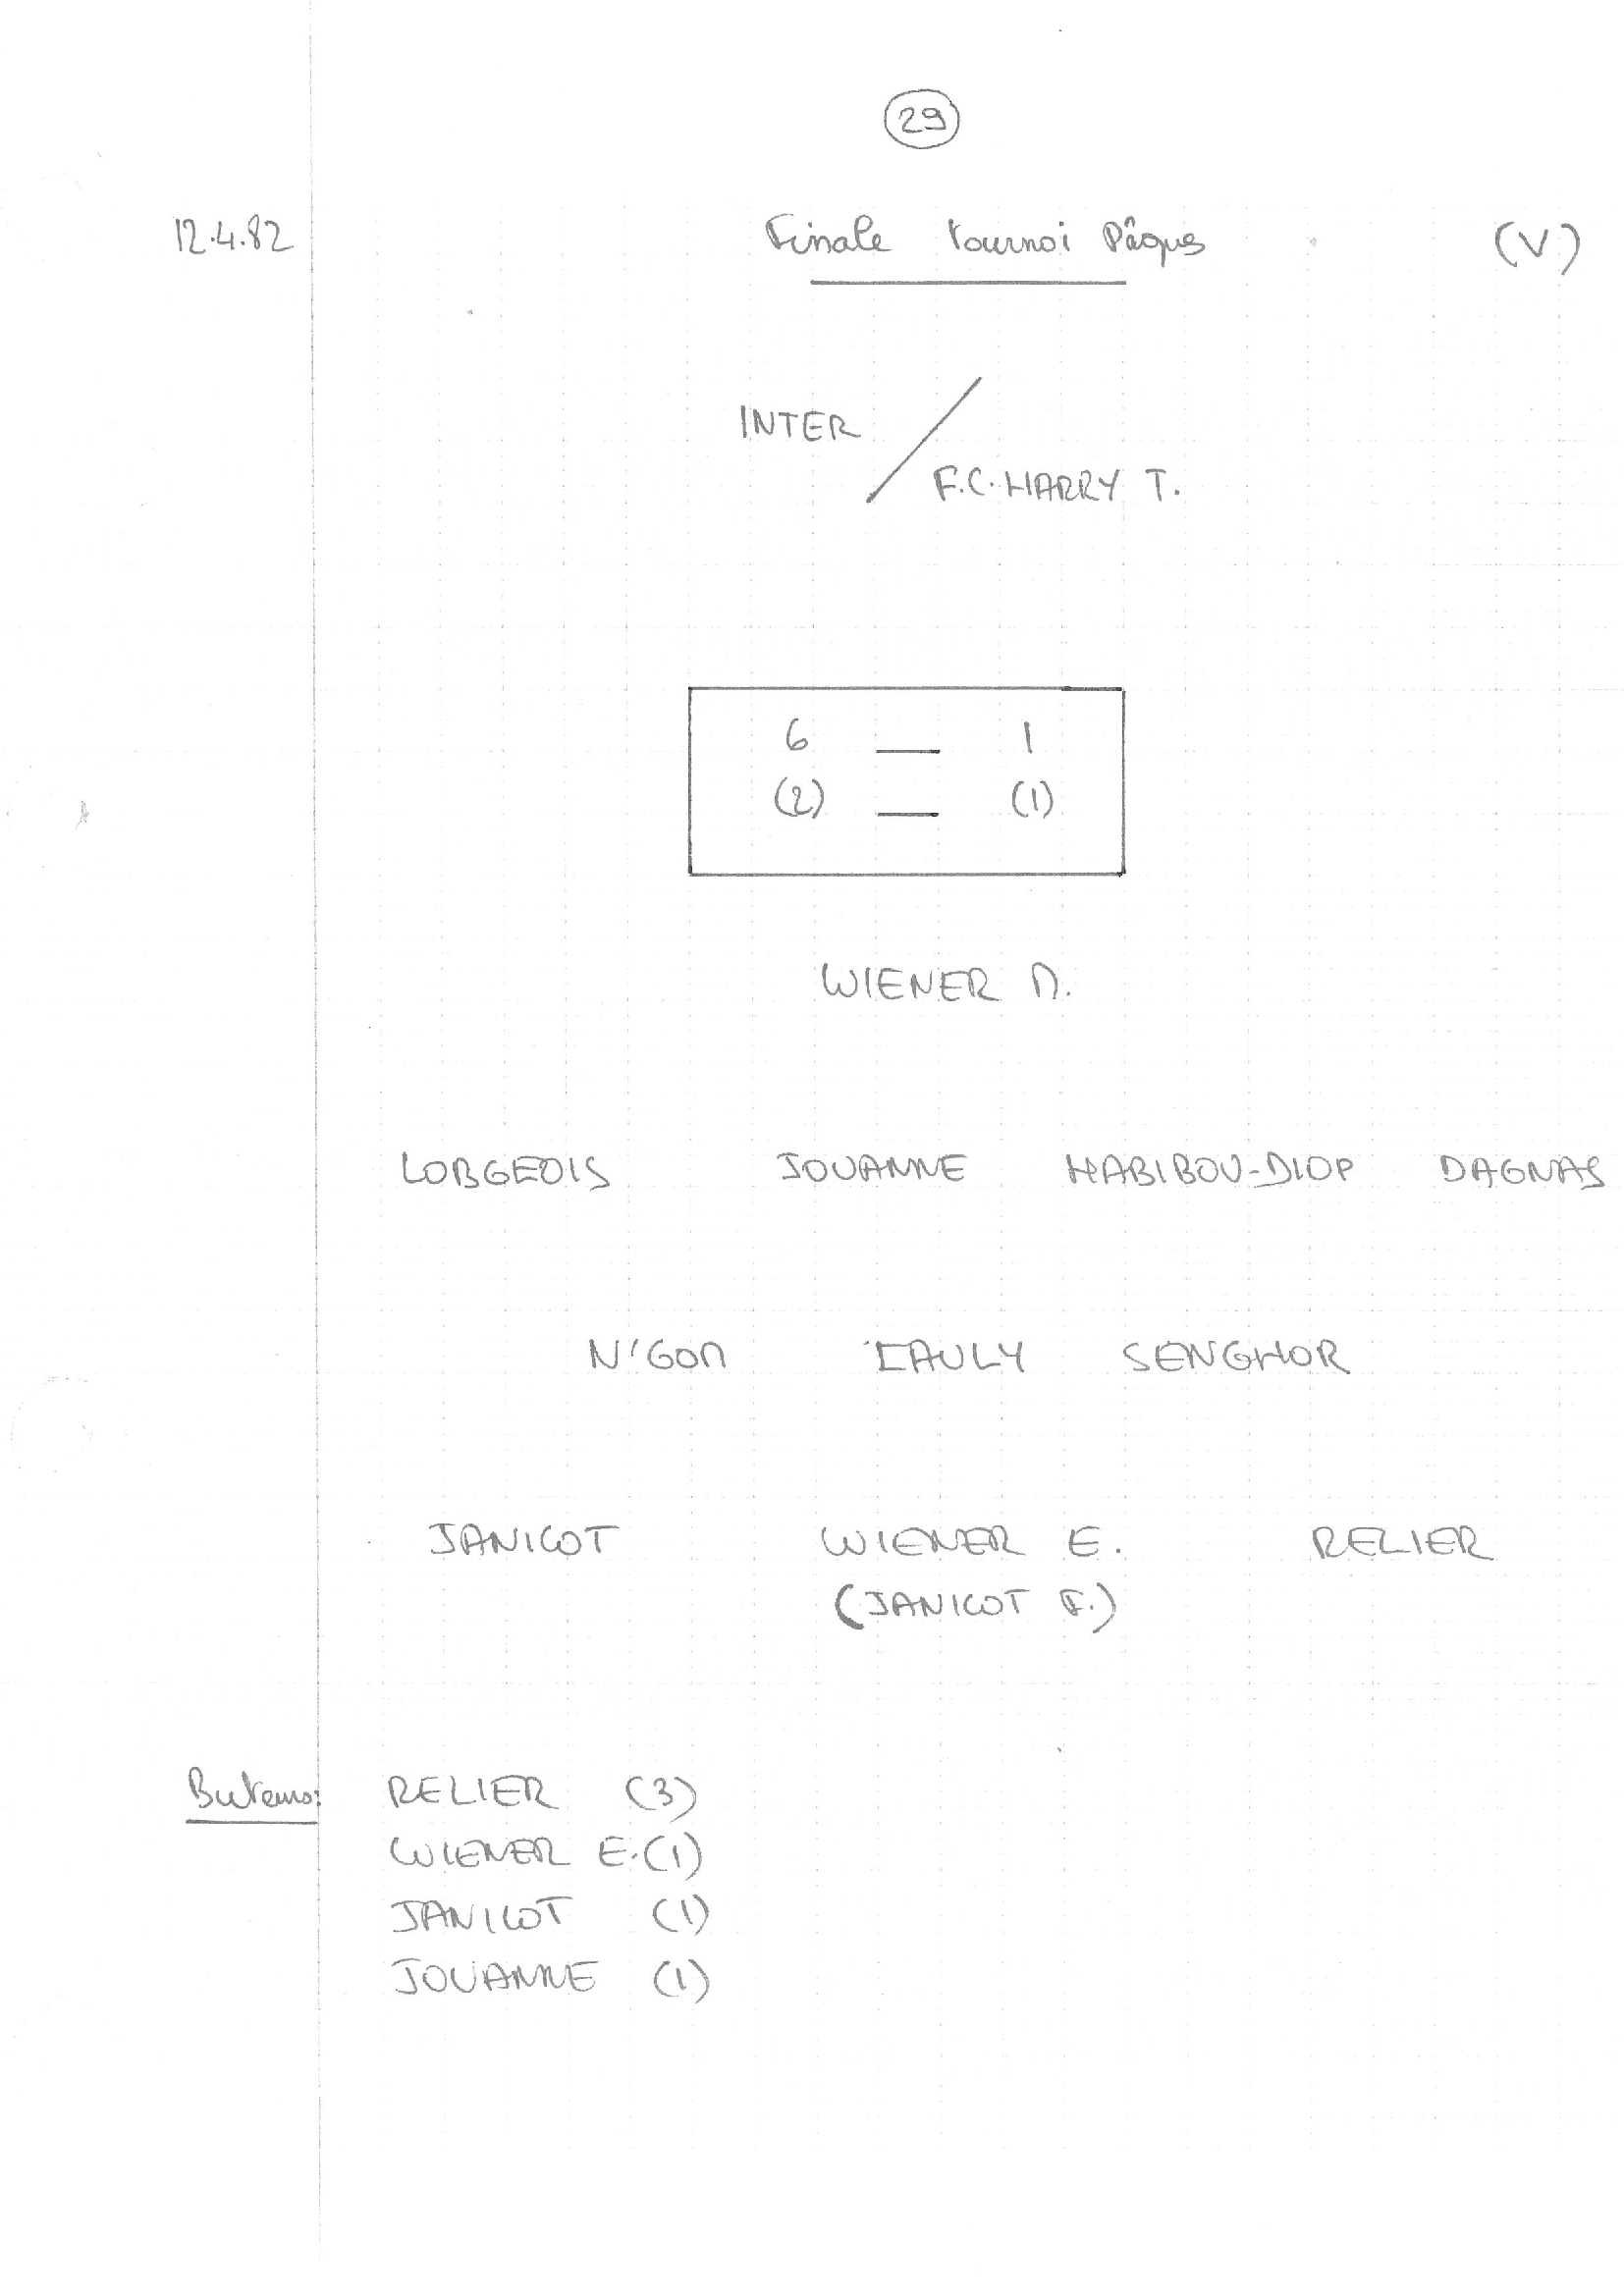 29
12.4.82 Finale tournoi Pâques (V)
INTER
F.C. HARRY T.
6 — 1
(2) — (1)
WIENER M.
LORGEOIS JOUANNE HABIBOU-DIOP DAGNAS
N'GOM IAULY SENGHOR
JANICOT WIENER E. RELIER
(JANICOT F.)
Buteurs: RELIER (3)
WIENER E. (1)
JANICOT (1)
JOUANNE (1)